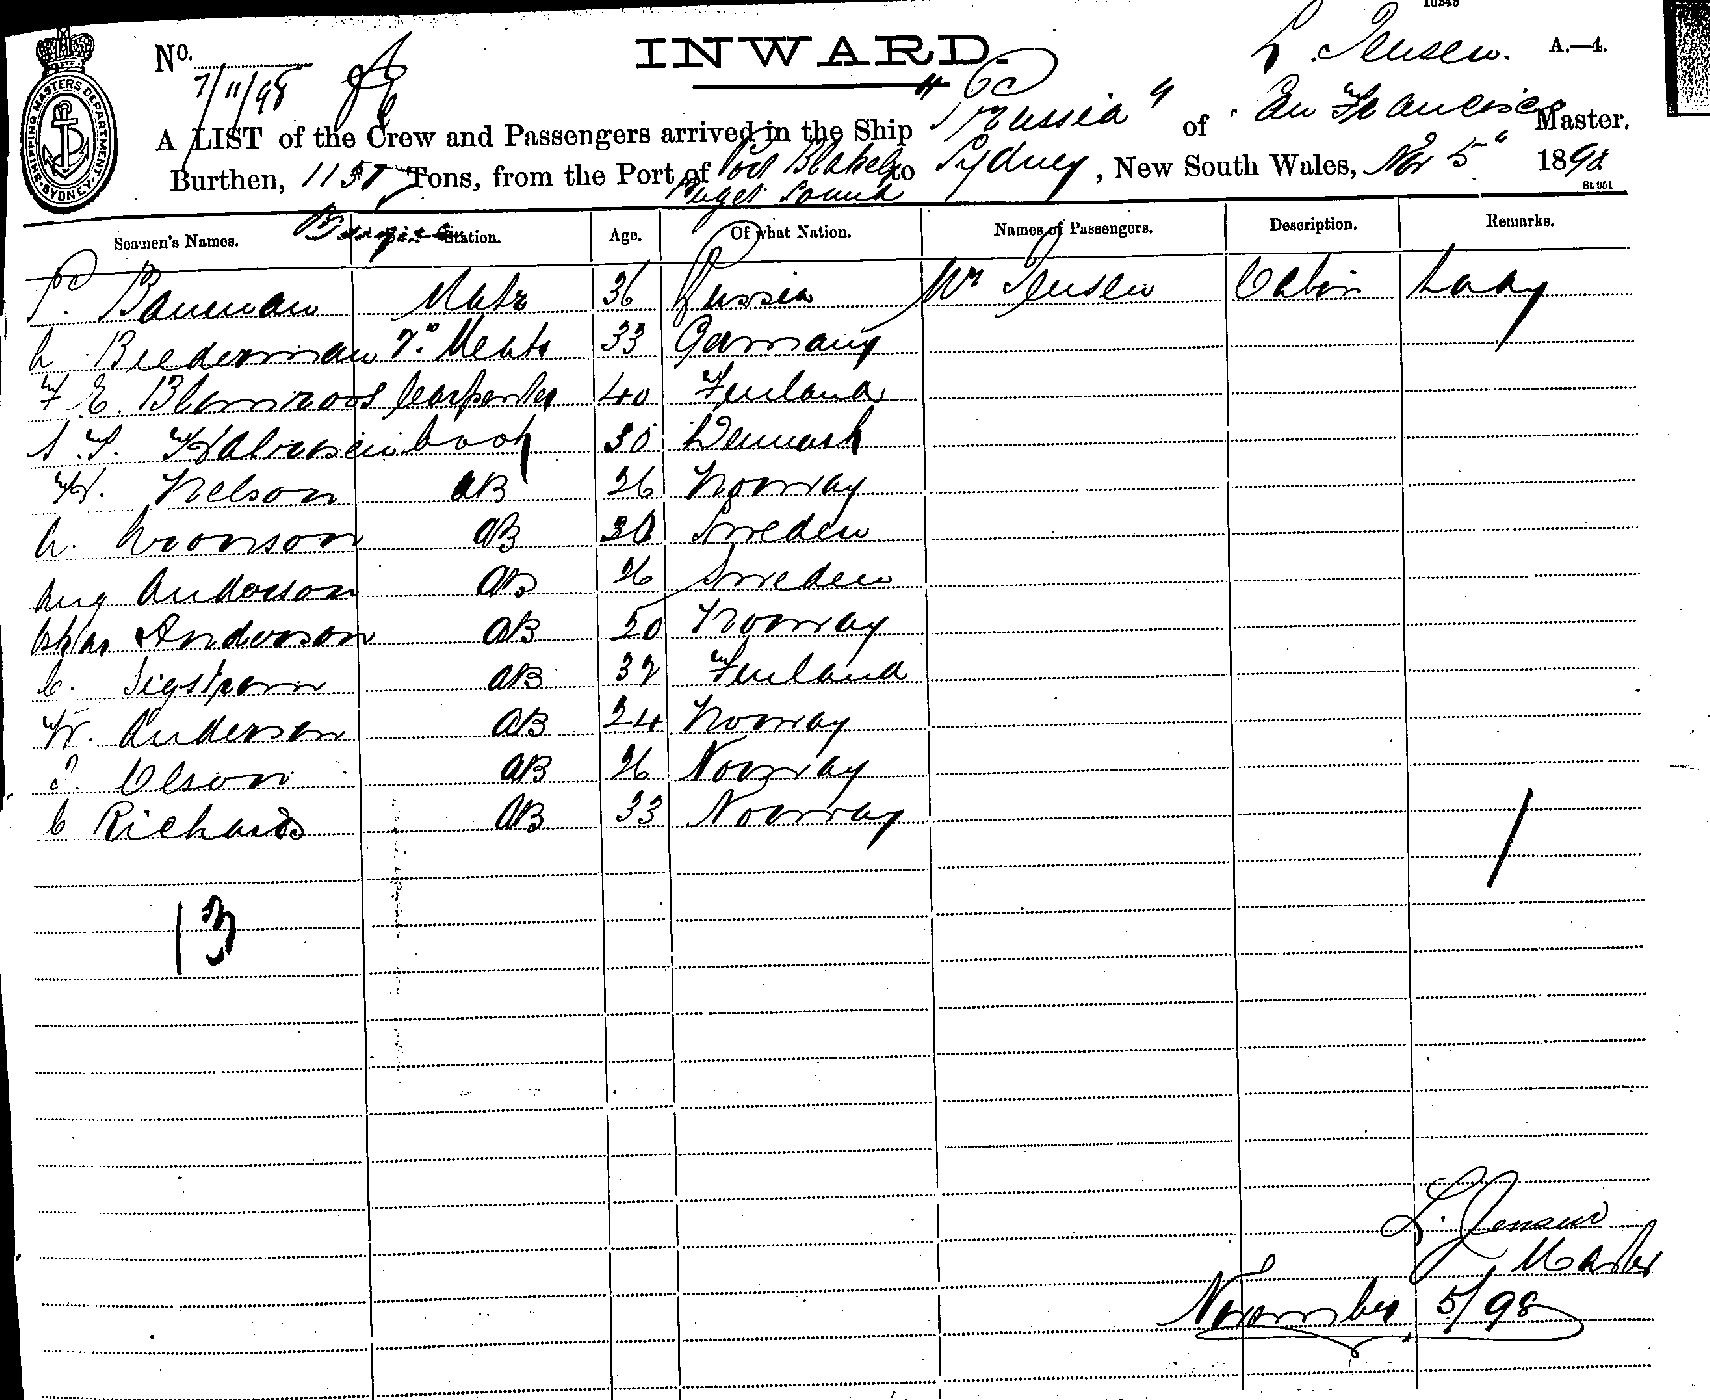 INWARD
No.
7/11/98
L. Jensen. A.—4.
A LIST of the Crew and Passengers arrived in the Ship "Prussia" of San Francisco Master.
Burthen, 1157 Tons, from the Port of Port Blakely to Sydney, New South Wales, Nov 5" 1898
Puget Sound
SHIPPING MASTERS DEPARTMENT SYDNEY
Seamen's Names. Station. Age. Of what Nation. Names of Passengers. Description. Remarks.
P. Bauman Mate 36 Russia Mrs Jensen Cabin Lady
Biederman 2nd Mate 33 Germany
F. E. Blomroos Carpenter 40 Finland
Cook 30 Denmark
Nelson AB 26 Norway
AB Sweden
Aug Anderson AB 26 Sweden
Chas Anderson AB 50 Norway
AB 32 Finland
Anderson AB 24 Norway
Olson AB 26 Norway
C Richards AB 33 Norway
1
13
L. Jensen
Master
November 5/98